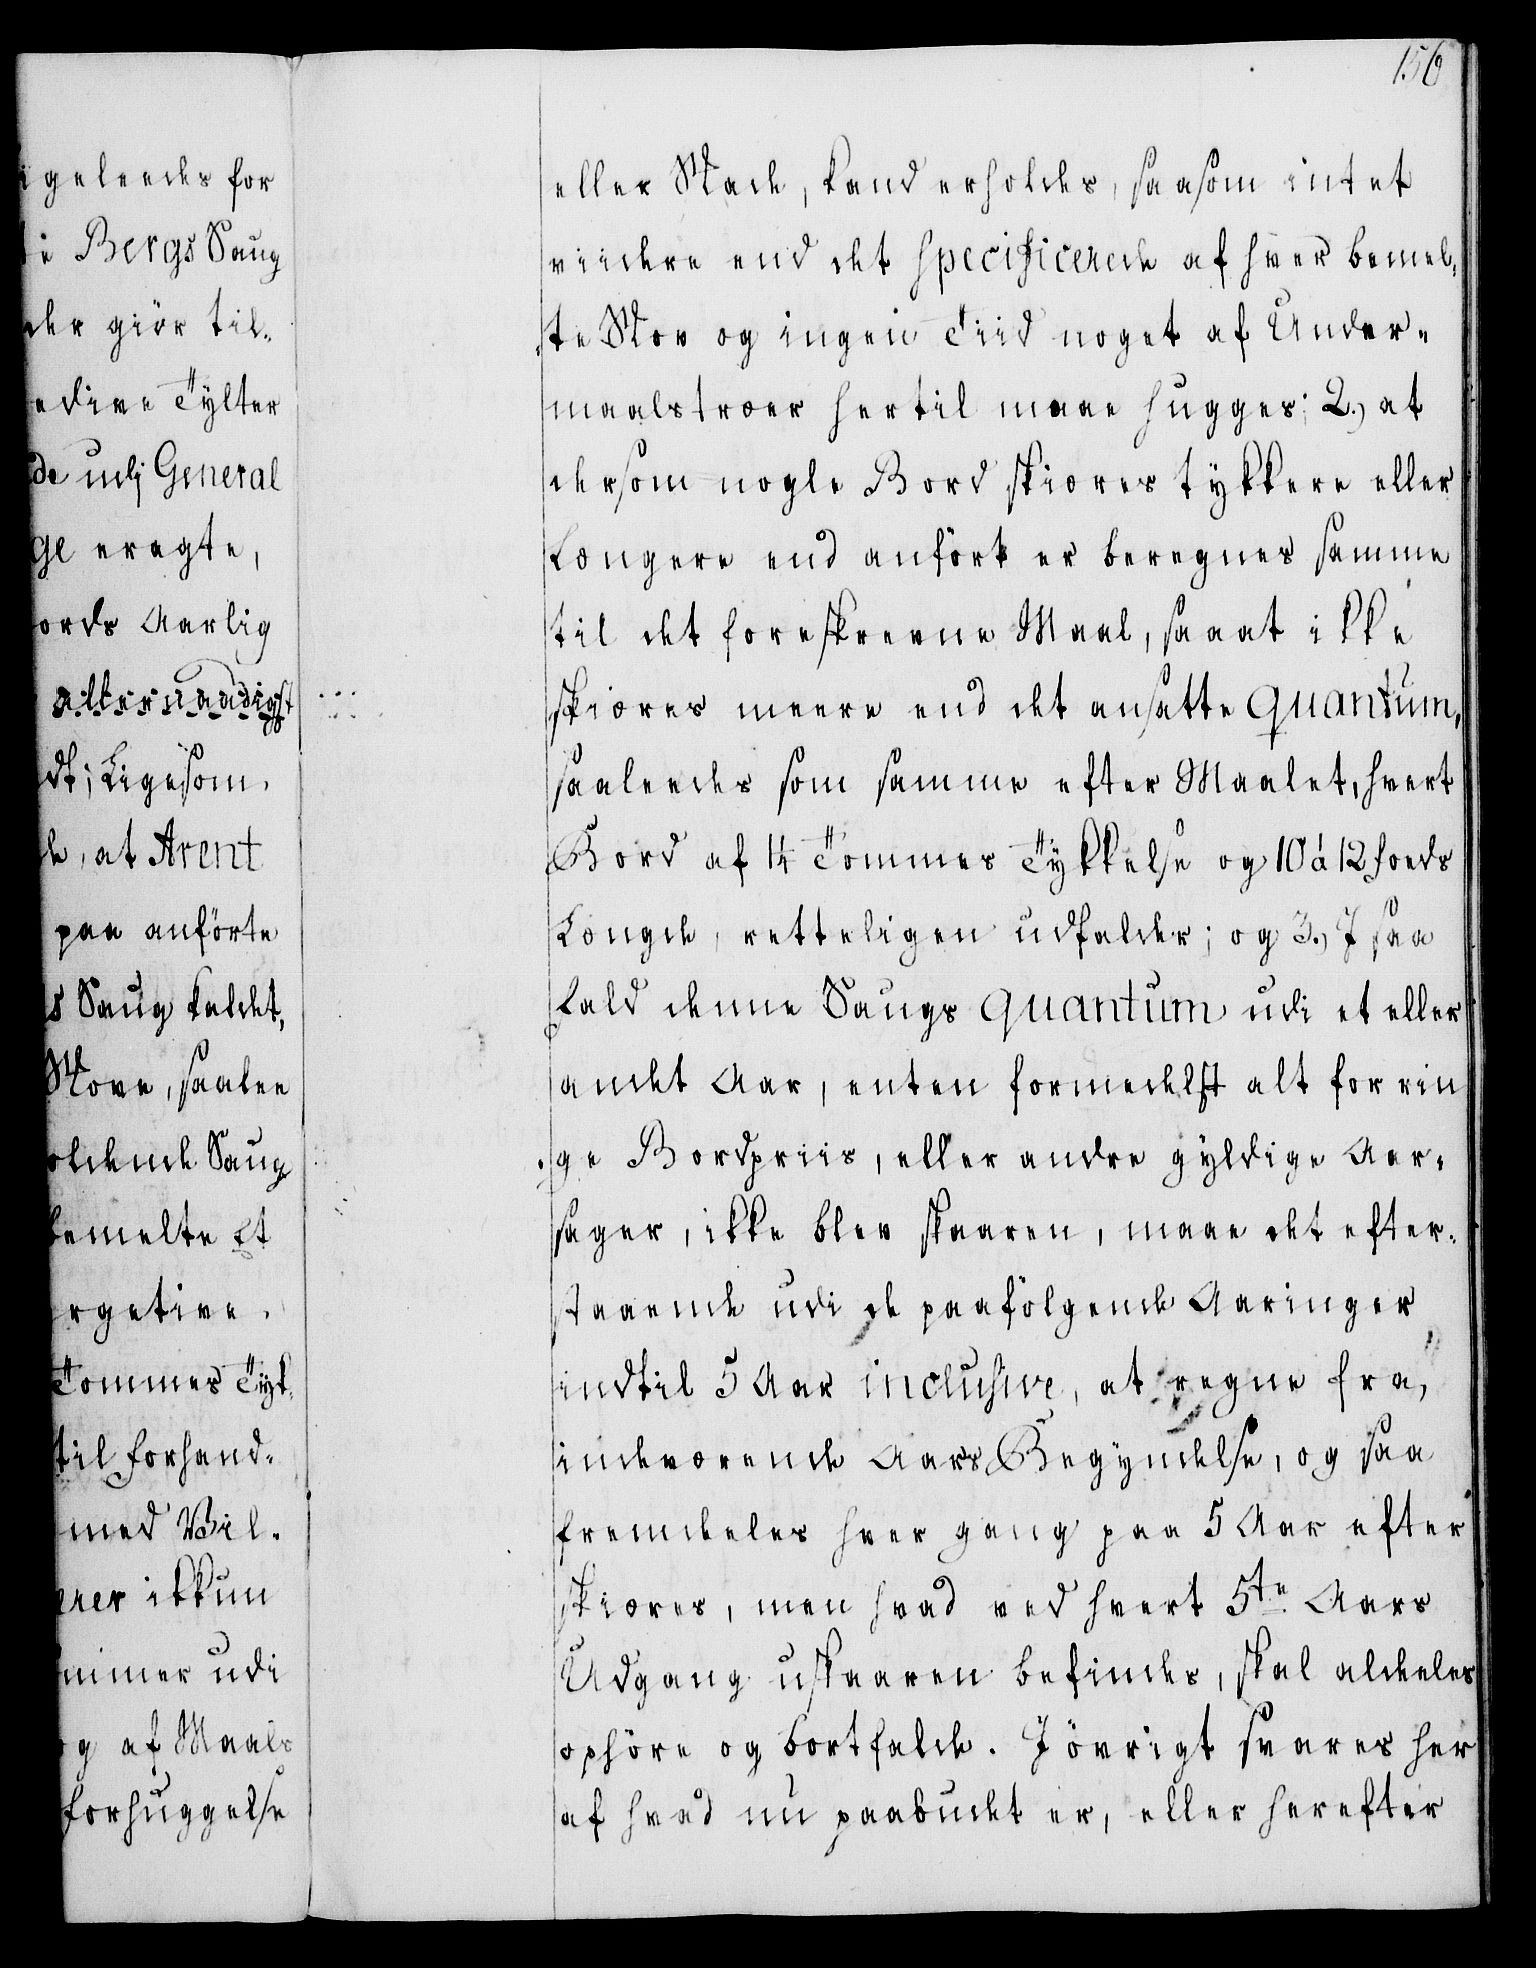 igeleedes for
i Bergs Saug
der giör til-
edive Tylter
de udj General
ge eragte,
ords Aarlig
allernaadigst
dt; Ligesom
e, at Arent
paa anförte
s Saug kaldet,
Skove, saalee
oldende Saug
bemelte Et
rgetive
Tommes Tyk-
til forhand-
med Vil-
erer ikkun
immer udi
og af Maals
forhuggelse
156
eller Skade, kand erholdes, saasom intet
viidere end det Specificerede af hver bemel-
te Skov og ingen Tiid noget af Under-
maalstræer hertil maae hugges; 2.) at
dersom nogle Bord skiæres tykkere eller
Længere end anfört er beregnes samme
til det foreskrevne Maal, saaat ikke
skiæres meere end det ansatte Quantum,
saaleedes som samme efter Maalet, hvert
Bord af 1¼ Tommes Tykkelse og 10 á 12 foeds
Længde, retteligen udfalder; og 3.) J saa
fald denne Saugs Quantum udi et eller
andet Aar, enten formedelst alt for rin
ge Bordpriis, eller andre gyldige Aar-
sager, ikke blev skaaren, maae det efter-
staaende udi de paafölgende Aaringer
indtil 5 Aar inclusive, at regne fra,
indeværende Aars Begyndelse, og saa
fremdeeles hver gang paa 5 Aar efter
skiæres, men hvad ved hvert 5te Aars
Udgang uskaaren befindes, skal aldeeles
ophöre og bortfalde. J övrigt svares her
af hvad nu paabudet er, eller herefter